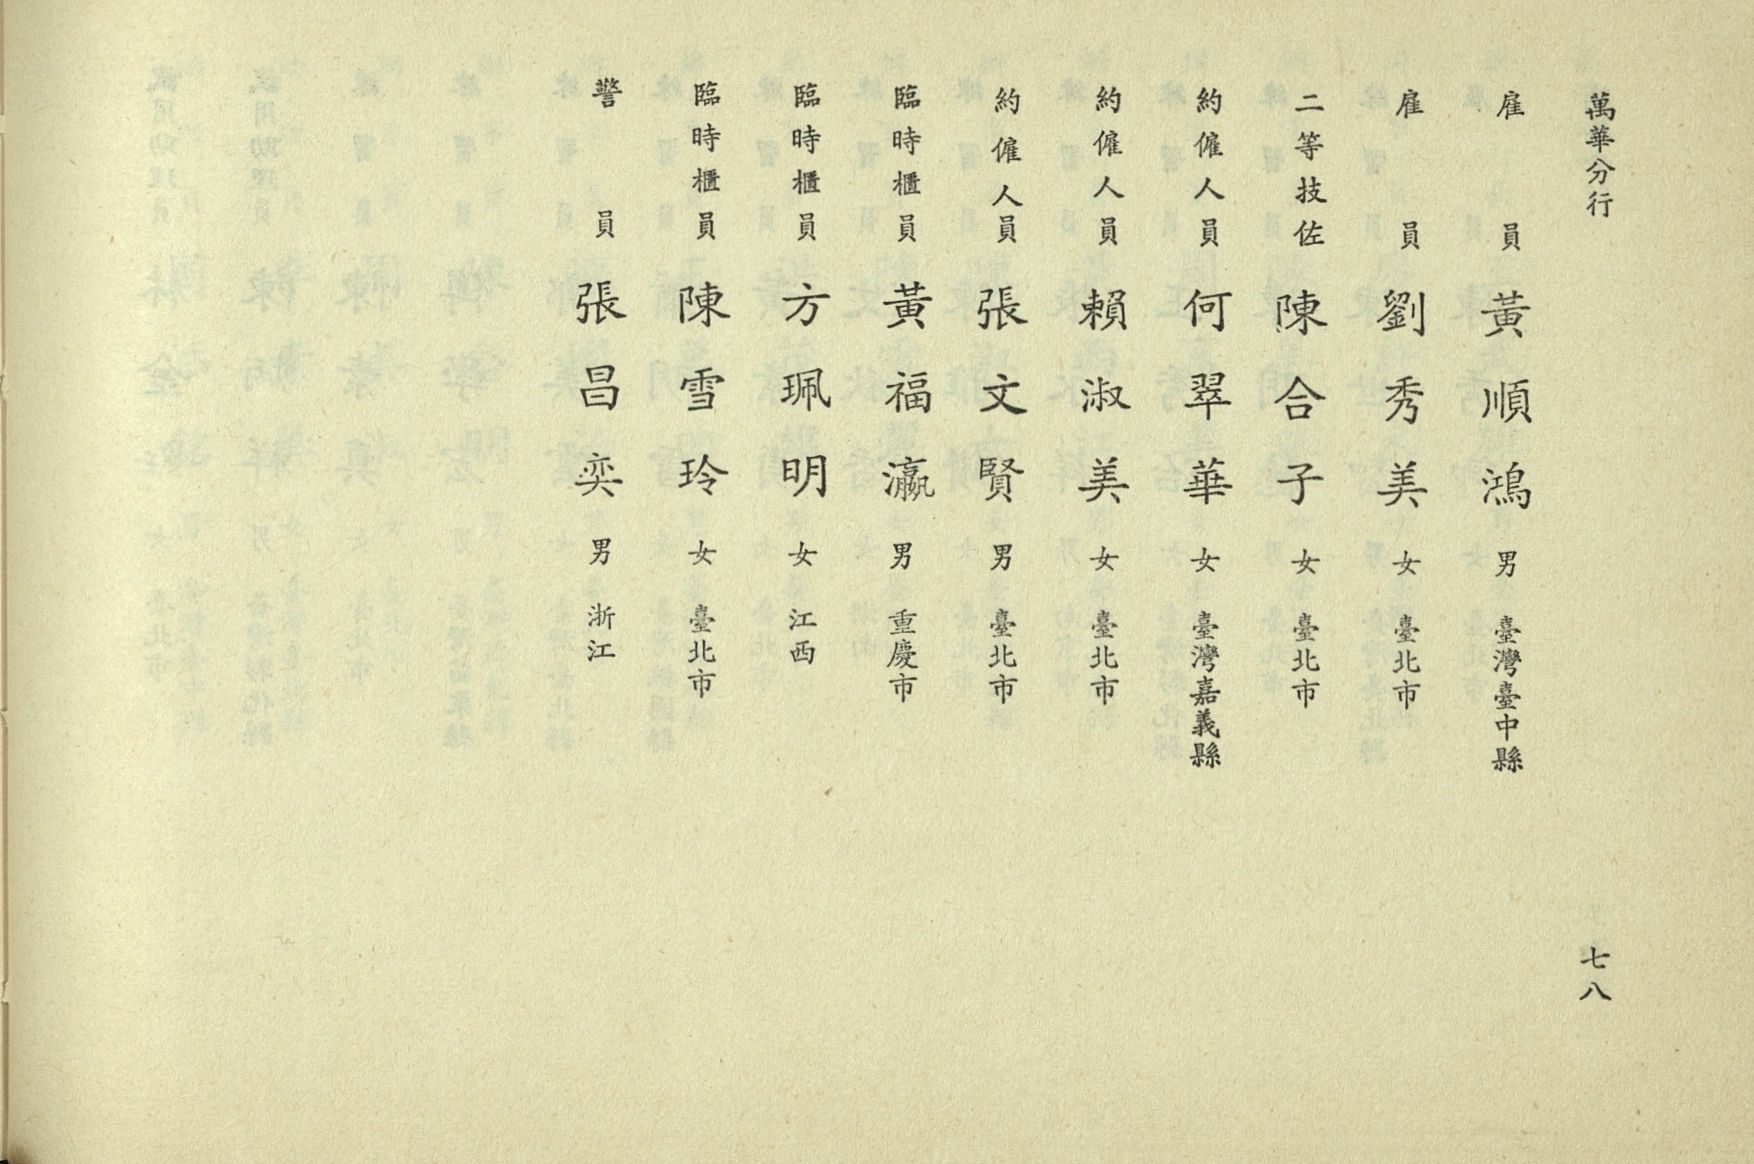 萬華分行
七八
雇員 黃順鴻 男 臺灣臺中縣
雇員 劉秀美 女 臺北市
二等技佐 陳合子 女 臺北市
約僱人員 何翠華 女 臺灣嘉義縣
約僱人員 賴淑美 女 臺北市
約僱人員 張文賢 男 臺北市
臨時櫃員 黃福瀛 男 重慶市
臨時櫃員 方珮明 女 江西
臨時櫃員 陳雪玲 女 臺北市
警員 張昌奕 男 浙江